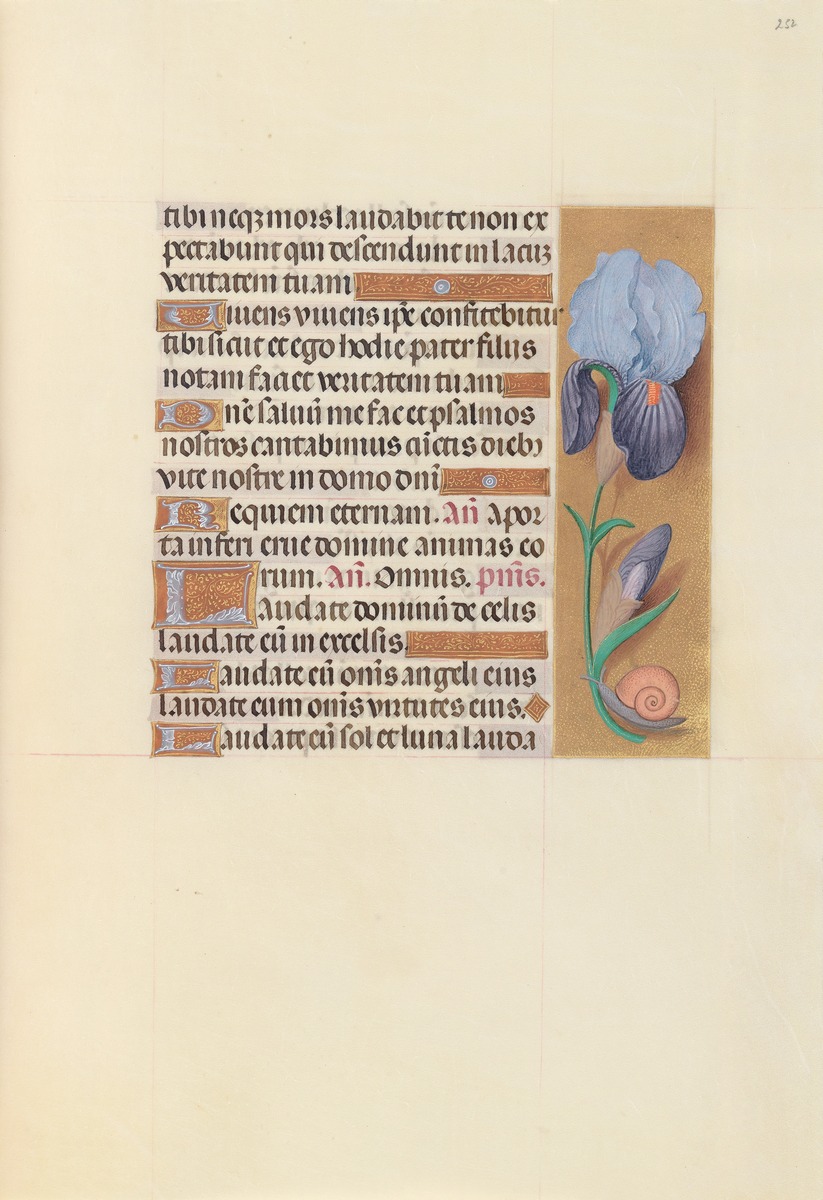 252
tibi neqꝫ mors laudabit te non ex
pectabunt qui descendunt in lacuꝫ
veritatem tuam
Viuens viuens ip̄e confitebitur
tibi sicut et ego hodie pater filiis
notam faciet veritatem tuam
Dn̄e saluū me fac et psalmos
nostros cantabimus cūctis diebꝫ
vite nostre in domo dn̄i
Requiem eternam. An̄ A por
ta inferi erue domine animas eo
rum. An̄. Omnis. pm̄s.
Laudate dominū de celis
laudate eū in excelsis.
Laudate eū om̄s angeli eius
laudate eum om̄s virtutes eius.
Laudate eū sol et luna lauda